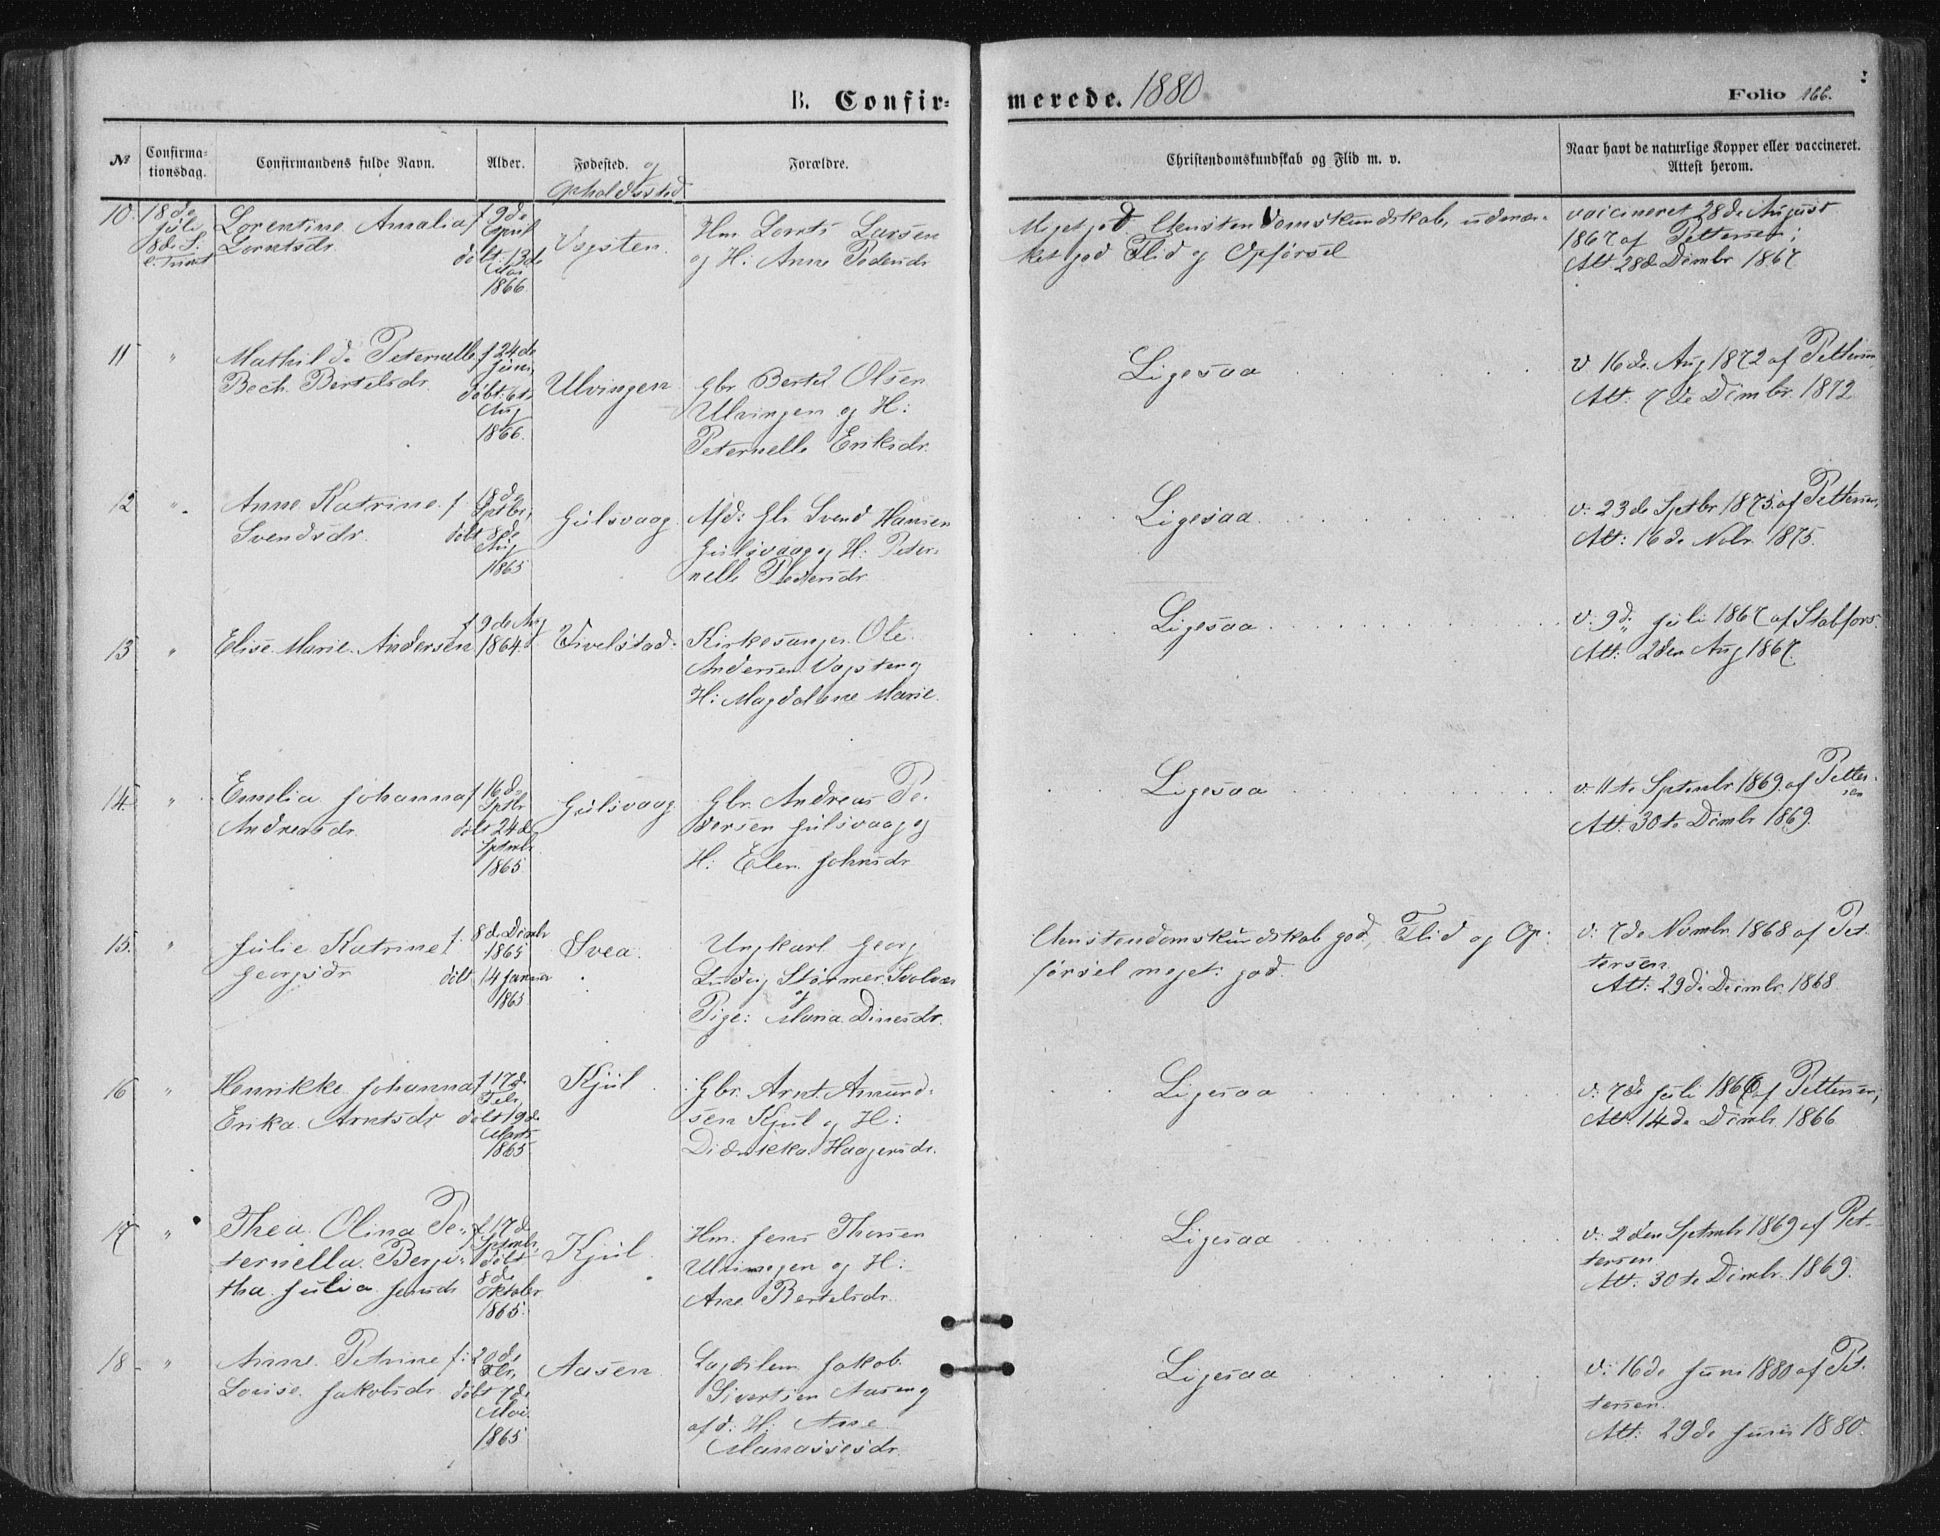 B. Confir=
merede. 1880
Folio 166.
No
Confirma=
tionsdag.
Confirmandens fulde Navn.
Alder.
Fødested. og
Opholdssted
Forældre.
Christendomskundskab og Flid m. v.
Naar havt de naturlige Kopper eller vaccineret.
Attest herom.
10.
18de
Juli
8de S.
e. Trinit
Lorentine Amalia
Lorntsdr.
f 9de
April
døbt 13de
Mai
1866.
Vogsten.
Hm. Lornts Larsen
og H: Anne Pedersdr.
Meget god Christendomskundskab, udmær-
ket god Flid og Opførsel
vaccineret 28de August
1867 af Pettersen;
Att. 28de Dcembr 1867
11
"
Mathilde Peternelle
Bech Bertelsdr.
f 24de
Juni,
døbt 6te
Aug
1866.
Ulvingen
Gbr. Bertel Olsen
Ulvingen og H:
Peternelle Eriksdr.
Ligesaa
v 16de Aug 1872 af Pettersen,
Att: 7de Dcembr. 1872
12
"
Anne Katrine
Svendsdr.
f. 18de
Sptbr,
døbt 8de
Aug
1865
Gulsvaag.
Afd: Gbr Svend Hansen
Gulsvaag og H: Peter-
nelle Pedersdr
Ligesaa
v: 23de Sptbr 1875 af Pettersen,
Att: 16de Nvbr. 1875.
13
"
Elise Marie Andersen
f 9de Aug
1864.
Tivelstad.
Kirkesanger Ole
Andersen Vogsten og
H: Magdalene Marie.
Ligesaa
v: 9de Juli 1867 af Stabfors.
Att: 2den Aug 1867.
14.
"
Emelia Johanna
Andreasdr.
f 16de
Sptbr
døbt 24de
Sptmbr
1865
Gulsvaag
Gbr. Andreas Pe-
dersen Gulsvaag og
H: Elen Johnsdr
Ligesaa
v: 11te Septembr 1869 af Petter-
sen
Att: 30te Dcembr 1869.
15.
"
Julie Katrine
Georgsdr
f. 8de Dcmbr
1865
døbt 14 Januar
1865
Svea.
Ungkarl Georg
Ludvig Stormer Solvær
og
Pige: Maria Dinesdr.
Christendomskundskab god, Flid og Op-
førsel meget god.
v: 7de Novmbr 1868 af Pet-
tersen.
Att: 29de Dcembr. 1868
16
"
Henrikke Johanna
Erika Arntsdr
f 17de
Febr,
døbt 19de
Marts
1865
Kjul
Gbr. Arnt Amund-
sen Kjul og H:
Didrikke Haagensdr.
Ligesaa
v: 7de Juli 1866 af Pettersen;
Att. 14de Dcmbr. 1866
17
"
Thea Olina Pe-
ternella Bergi-
tha Julia Jensdr
f 17de
Sptmbr,
døbt
8de
Oktober
1865.
Kjul
Hm. Jens Thorsen
Ulvingen og H:
Ane Bertelsdr.
Ligesaa
v: 2den Sptmbr 1869 af Pet-
tersen
Att: 30te Dcmbr. 1869.
18
"
Anne Petrine
Louise Jakobsdr
f: 20de
Febr,
døbt 7de
Mai.
1865
Aasen
Logdslem Jakob
Sivertsen Aasen og
afd: H: Ane
Manassesdr.
Ligesaa
v: 16de Juni 1880 af Pet-
tersen.
Att: 29de Juni 1880.